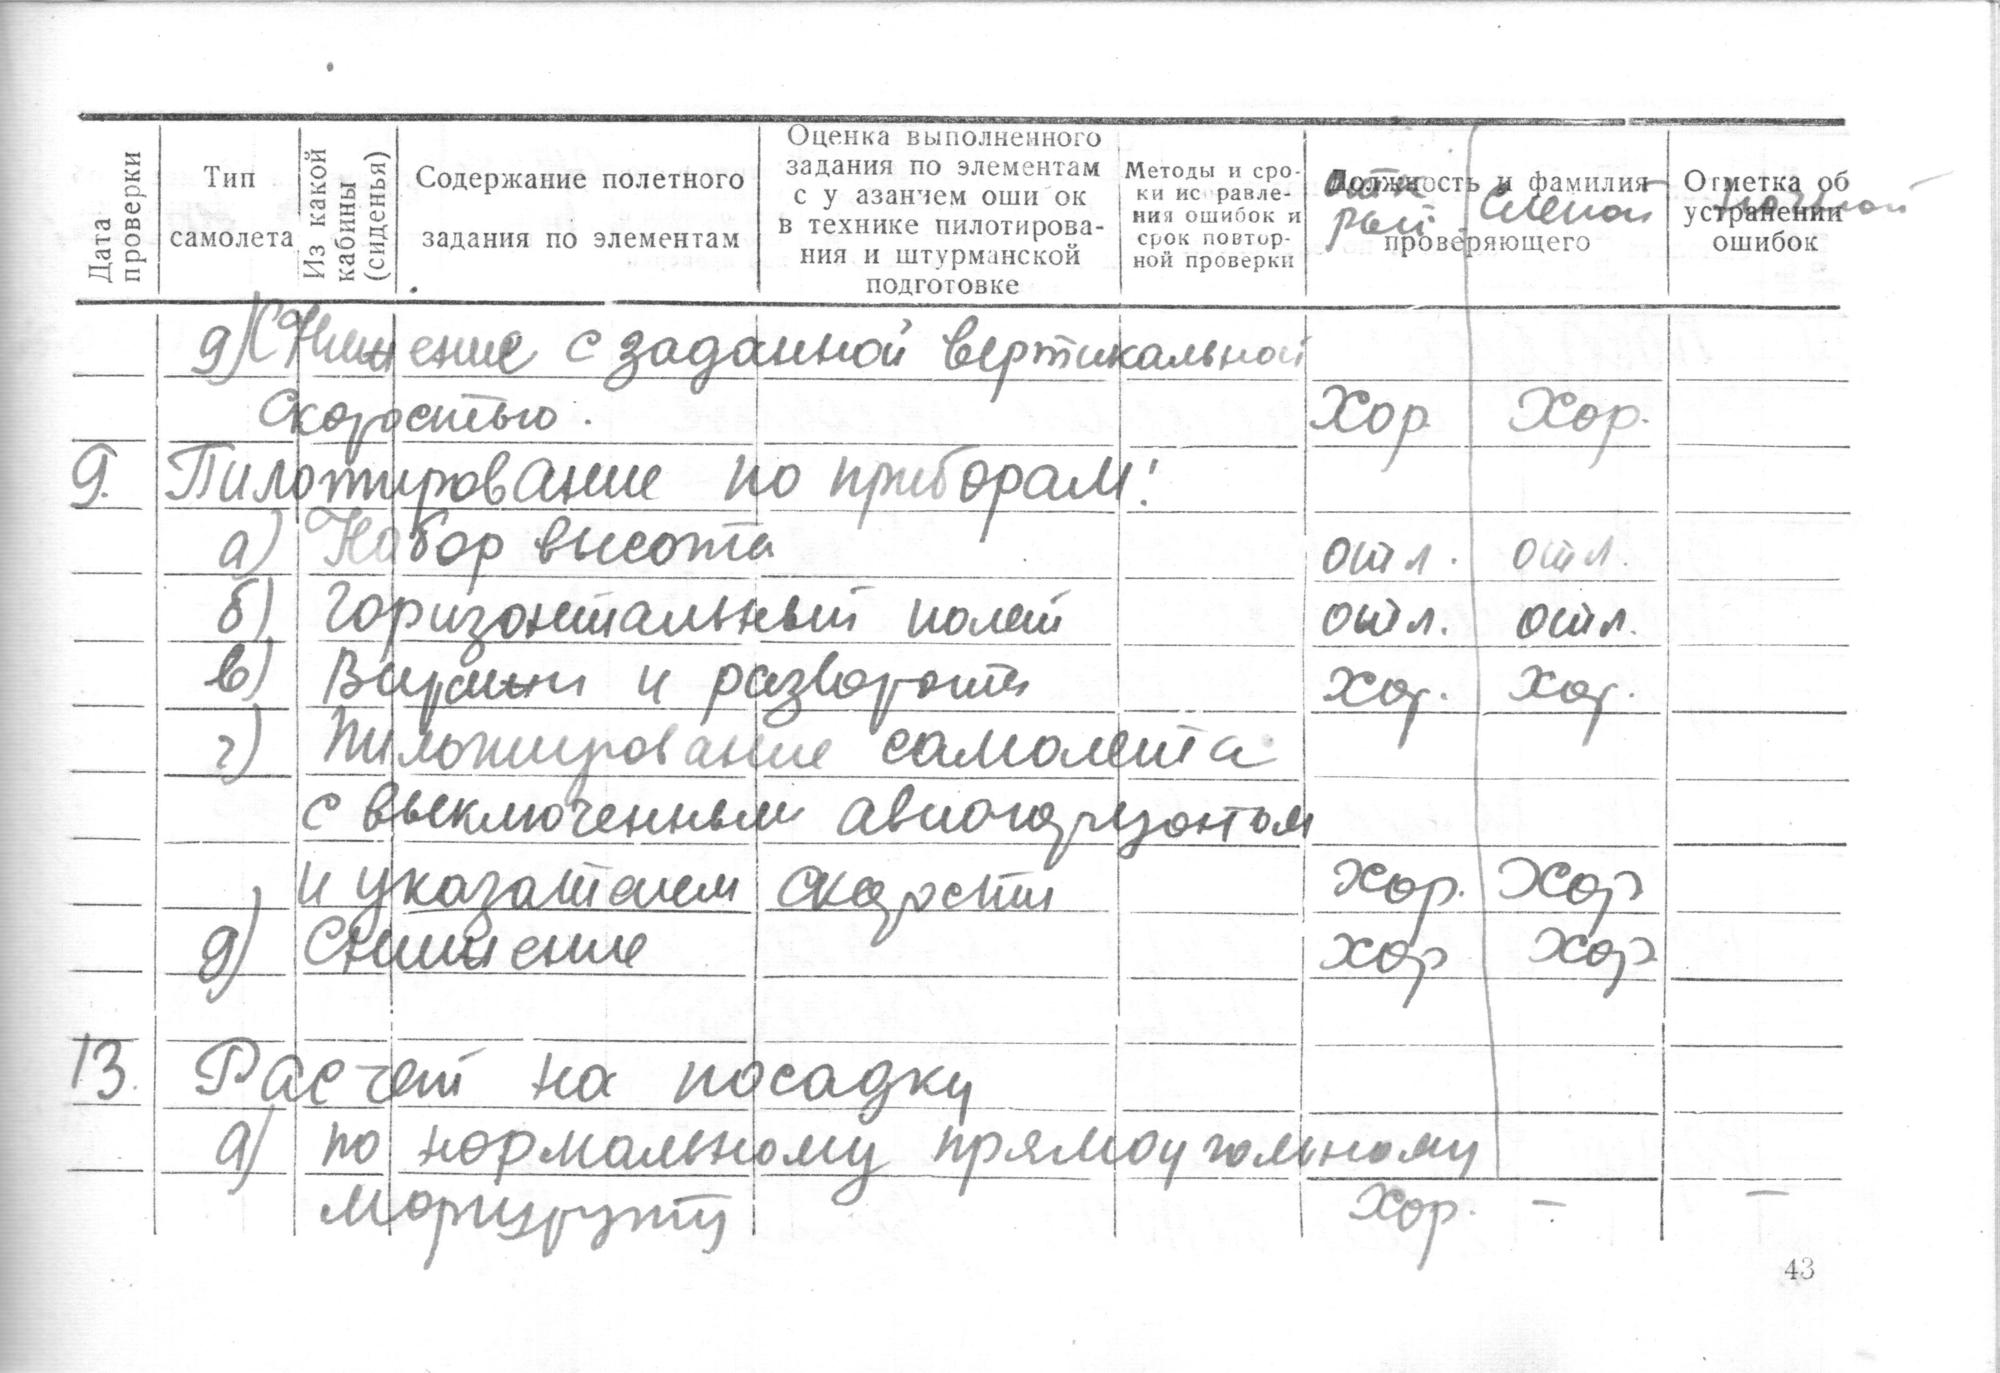 Дата проверки
Тип самолета
Из какой кабины (сиденья)
Содержание полетного задания по элементам
Оценка выполненного задания по элементам с у азанием оши ок в технике пилотирования и штурманской подготовке
Методы и сроки ис равления ошибок и срок повторной проверки
Должность и фамилия проверяющего
Отметка об устранении ошибок
слепой
ночной
д) Снижение с заданной вертикальной
скоростью. Хор. Хор.
9. Пилотирование по приборам:
а) Набор высоты отл. отл.
б) Горизонтальный полет отл. отл.
в) Виражи и развороты Хор. Хор.
г) Пилотирование самолета
с выключенным авиогоризонтом
и указателем скорости Хор. Хор
д) Снижение Хор Хор
13. Расчет на посадку
а) по нормальному прямоугольному
маршруту Хор. – –
43